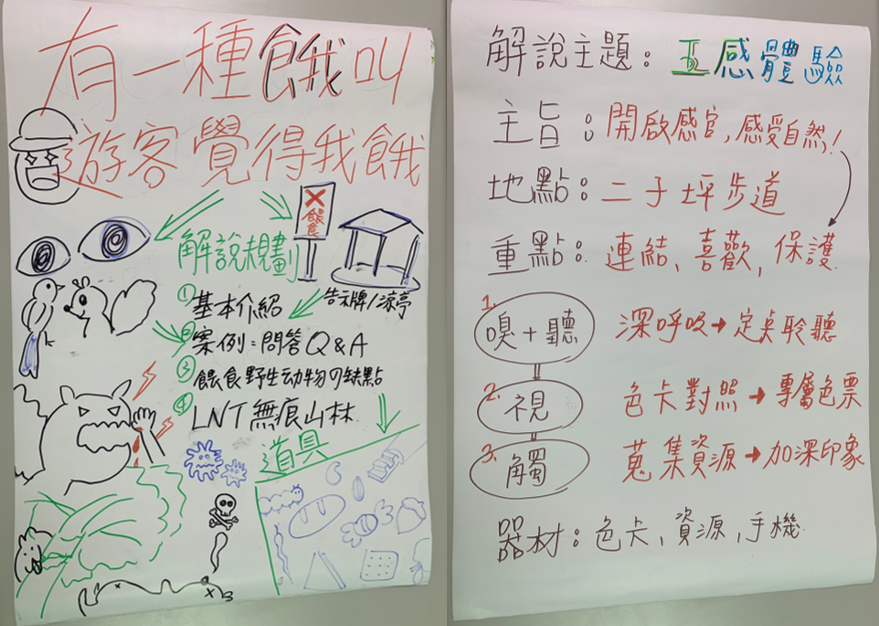 有一種餓叫
遊客覺得我餓
餵食
解說規劃
告示牌/涼亭
①基本介紹
②案例:問答Q&A
③餵食野生动物の缺點
④LNT無痕山林
道具
解說主題:五感體驗
主旨:開啟感官,感受自然!
地點:二子坪步道
重點:連結、喜歡,保護
1.
嗅+聽 深呼吸→定桌聆聽
2.
視 色卡對照→專屬色票
3.
觸 蒐集資源→加深印象
器材:色卡,資源,手機